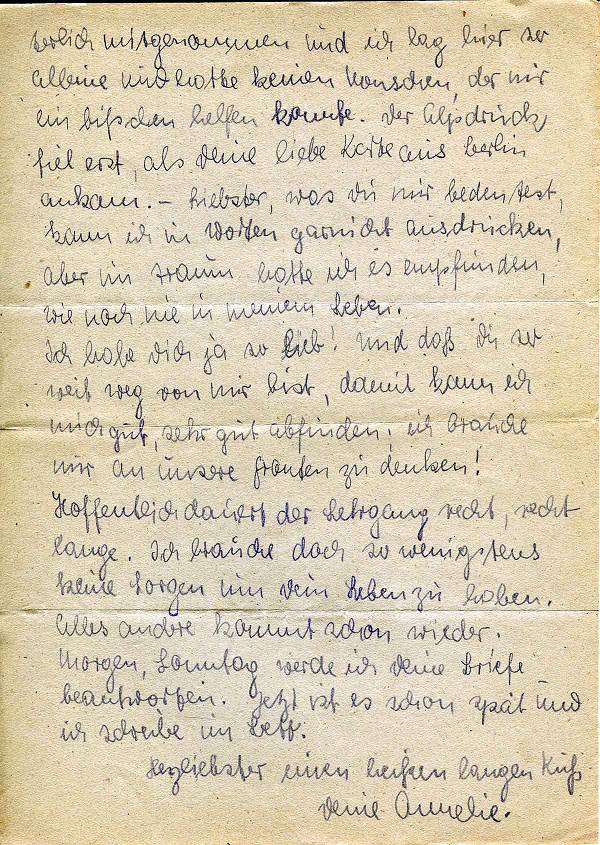 serlich mitgenommen und ich lag hier so
alleine und hatte keinen Menschen, der mir
ein bißchen helfen konnte. Der Alpdruck
fiel erst, als deine liebe Karte aus Berlin
ankam. – Liebster, was du mir bedeutest,
kann ich in Worten garnicht ausdrücken,
aber im Traum hatte ich es empfunden,
wie noch nie in meinem Leben.
Ich habe dich ja so lieb! Und daß du so
weit weg von mir bist, damit kann ich
mich gut, sehr gut abfinden, ich brauche
nur an unsere Fronten zu denken!
Hoffentlich dauert der Lehrgang recht, recht
lange. Ich brauche doch so wenigstens
keine Sorgen um dein Leben zu haben.
Alles andre kommt schon wieder.
Morgen, Sonntag werde ich deine Briefe
beantworten. Jetzt ist es schon spät und
ich schreibe im Bett.
Herzliebster einen heißen langen Kuß
deine Annelie.